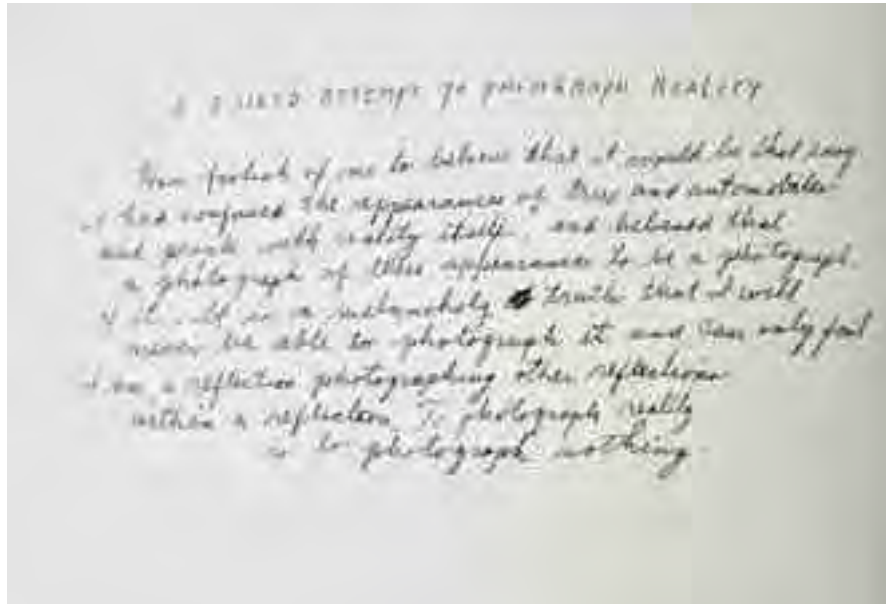 A FAILED ATTEMPT TO PHOTOGRAPH REALITY
How foolish of me to believe that it would be that easy.
I had confused the appearances of trees and automobiles
and people with reality itself, and believed that
a photograph of these appearances to be a photograph
of it. It is a melancholy truth that I will
never be able to photograph it and can only fail.
I am a reflection photographing other reflections
within a reflection. To photograph reality
is to photograph nothing.